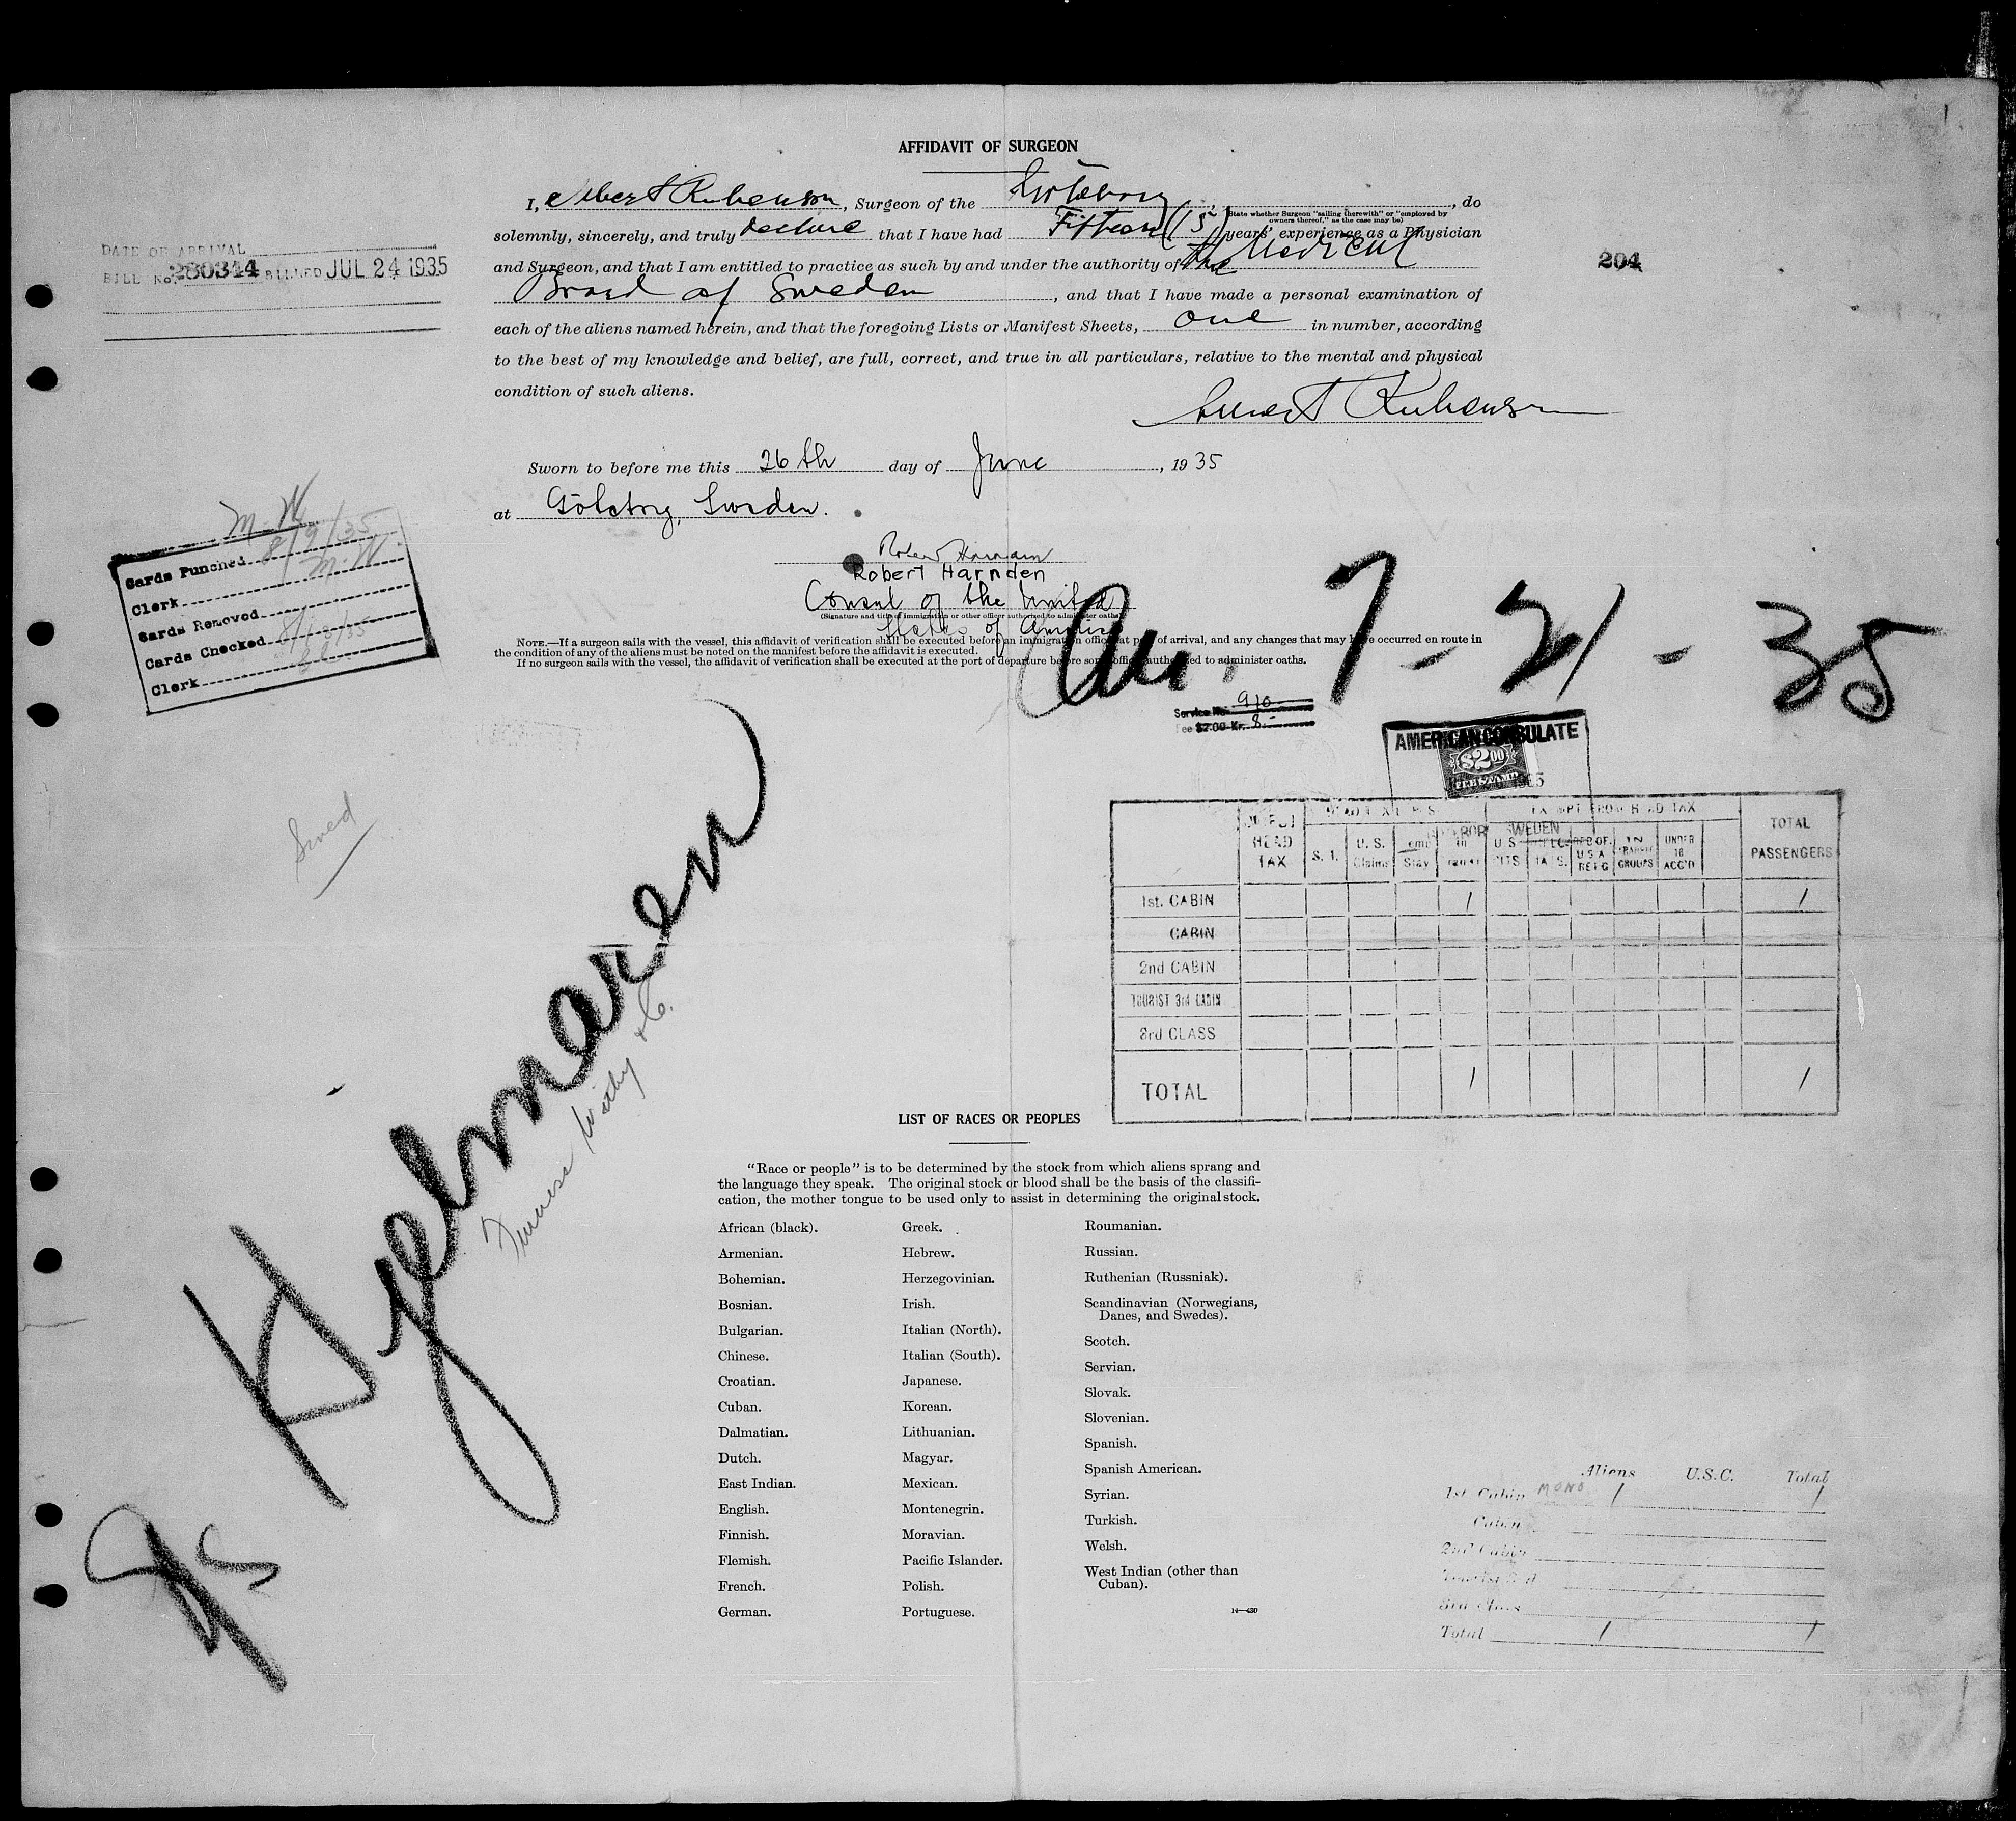 AFFIDAVIT OF SURGEON
I, Albert Rubenson, Surgeon of the Göteborg, do
State whether Surgeon "sailing therewith" or "employed by
owners thereof," as the case may be)
solemnly, sincerely, and truly declare that I have had Fifteen (15) years' experience as a Physician
and Surgeon, and that I am entitled to practice as such by and under the authority of the Medical
Board of Sweden, and that I have made a personal examination of
each of the aliens named herein, and that the foregoing Lists or Manifest Sheets, one in number, according
to the best of my knowledge and belief, are full, correct, and true in all particulars, relative to the mental and physical
condition of such aliens.
Albert Rubenson
DATE OF ARRIVAL
BILL No. 280344 BILLED JUL 24 1935
204
Sworn to before me this 26th day of June, 1935
at Göteborg, Sweden.
Robert Harnden
Robert Harnden
Consul of the United
(Signature and title of immigration or other officer authorized to administer oaths)
States of America
NOTE.—If a surgeon sails with the vessel, this affidavit of verification shall be executed before an immigration officer at port of arrival, and any changes that may have occurred en route in
the condition of any of the aliens must be noted on the manifest before the affidavit is executed.
If no surgeon sails with the vessel, the affidavit of verification shall be executed at the port of departure before some officer authorized to administer oaths.
M.W.
Cards Punched 8/9/35
Clerk M.W.
Cards Removed
Cards Checked 8/13/35
Clerk
7-21-35
Service No. 910
Fee $2.00 Kr. 8.-
AMERICAN CONSULATE
$2.00
FEE STAMP
SWEDEN
HEAD TAX
EXEMPT FROM HEAD TAX
TOTAL PASSENGERS
S. I.
U. S. Claims
Temp Stay
In Transit
U S CITS
REC OF. U S A REF G
IN TRANSIT GROUPS
UNDER 16 ACC'D
1st. CABIN 1 1
CABIN
2nd CABIN
TOURIST 3rd CABIN
3rd CLASS
TOTAL 1 1
Swed
Hjelmaren
Furness Withy & Co.
LIST OF RACES OR PEOPLES
"Race or people" is to be determined by the stock from which aliens sprang and
the language they speak. The original stock or blood shall be the basis of the classifi-
cation, the mother tongue to be used only to assist in determining the original stock.
African (black).
Armenian.
Bohemian.
Bosnian.
Bulgarian.
Chinese.
Croatian.
Cuban.
Dalmatian.
Dutch.
East Indian.
English.
Finnish.
Flemish.
French.
German.
Greek.
Hebrew.
Herzegovinian.
Irish.
Italian (North).
Italian (South).
Japanese.
Korean.
Lithuanian.
Magyar.
Mexican.
Montenegrin.
Moravian.
Pacific Islander.
Polish.
Portuguese.
Roumanian.
Russian.
Ruthenian (Russniak).
Scandinavian (Norwegians,
Danes, and Swedes).
Scotch.
Servian.
Slovak.
Slovenian.
Spanish.
Spanish American.
Syrian.
Turkish.
Welsh.
West Indian (other than
Cuban).
14—430
Aliens U.S.C. Total
1st Cabin MONO 1 1
Cabin
2nd Cabin
Tourist 3rd
3rd Class
Total 1 1